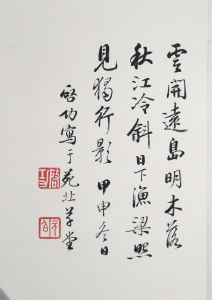 雲開遠島明木落
秋江冷斜日下漁梁照
見獨行影 甲申冬日
啓功寫于苑北草堂